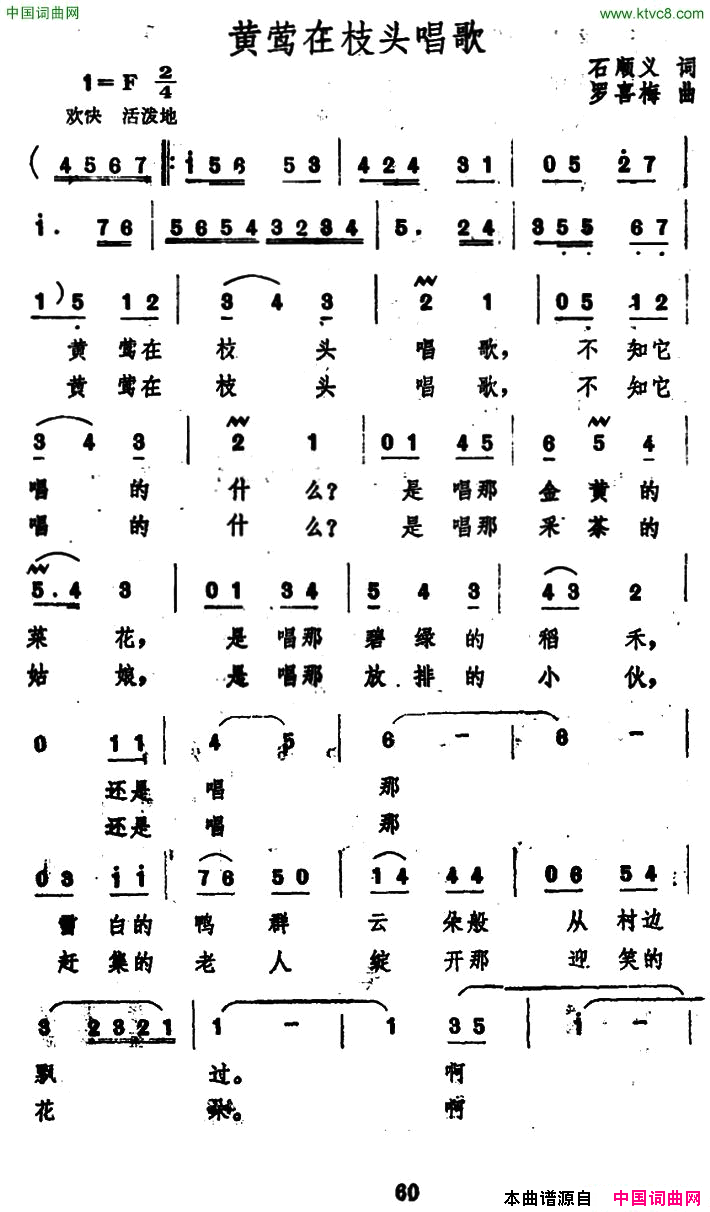 中国词曲网
www.ktvc8.com
黄莺在枝头唱歌
1=F 2/4
石顺义 词
罗喜梅 曲
欢快 活泼地
( 4567 ‖: i56 53 | 424 31 | 05 27 |
i. 76 | 5654 3234 | 5. 24 | 355 67 |
1) 5 12 | 3 4 3 | 2 1 | 05 12 |
黄 莺在 枝 头 唱 歌, 不 知它
黄 莺在 枝 头 唱 歌, 不 知它
3 4 3 | 2 1 | 01 45 | 6 5 4 |
唱 的 什 么? 是 唱那 金 黄 的
唱 的 什 么? 是 唱那 采 茶 的
5.4 3 | 01 34 | 5 4 3 | 43 2 |
菜 花, 是 唱那 碧 绿 的 稻 禾,
姑 娘, 是 唱那 放 排 的 小 伙,
0 11 | 4 5 | 6 - | 6 - |
还是 唱 那
还是 唱 那
03 ii | 76 50 | 14 44 | 06 54 |
雪 白的 鸭 群 云 朵般 从 村边
赶 集的 老 人 绽 开那 迎 笑的
3 2321 | 1 - | 1 35 | i - |
飘 过。 啊
花 朵。 啊
60
本曲谱源自 中国词曲网